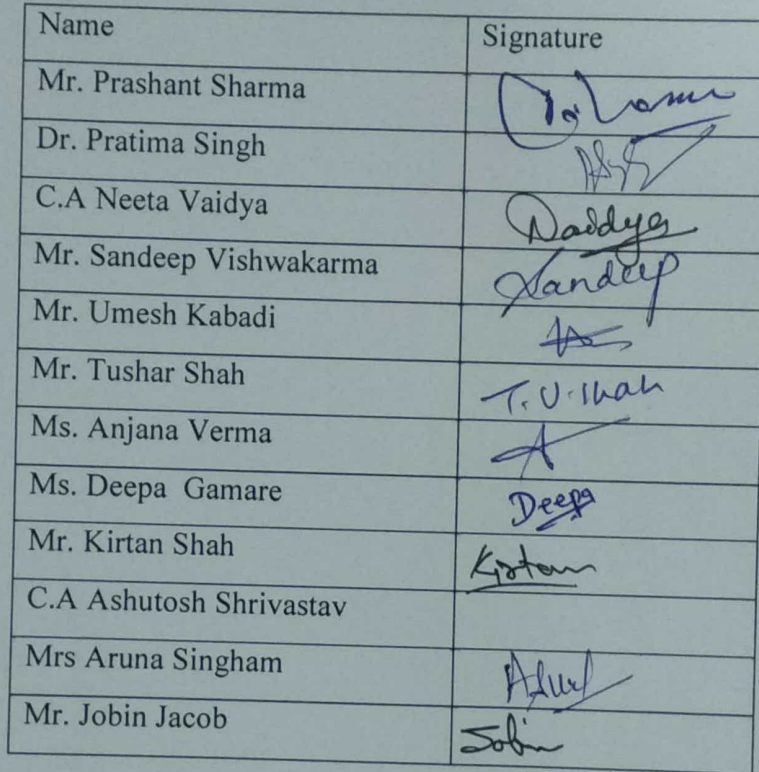 Name Signature
Mr. Prashant Sharma
Dr. Pratima Singh
C.A Neeta Vaidya Vaidya
Mr. Sandeep Vishwakarma Sandeep
Mr. Umesh Kabadi
Mr. Tushar Shah T.U.Shah
Ms. Anjana Verma A
Ms. Deepa Gamare Deepa
Mr. Kirtan Shah Kirtan
C.A Ashutosh Shrivastav
Mrs Aruna Singham
Mr. Jobin Jacob Jobin